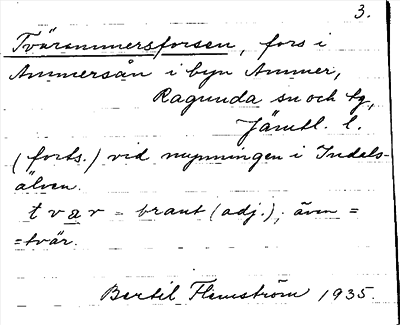 3.
Tvärammersforsen, fors i
Ammersån i byn Ammer,
Ragunda sn och tg,
Jämtl. l.
(forts.) vid mynningen i Indals-
älven.
tvar = brant (adj.); även =
=tvär.
Bertil Flemström 1935.